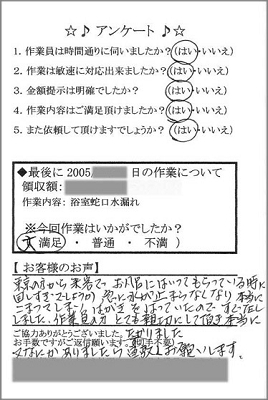 ☆♪ アンケート ♪☆
1. 作業員は時間通りに伺いましたか？(はい・いいえ)
2. 作業は敏速に対応出来ましたか？(はい・いいえ)
3. 金額提示は明確でしたか？(はい・いいえ)
4. 作業内容はご満足頂けましたか？(はい・いいえ)
5. また依頼して頂けますでしょうか？(はい・いいえ)
◆最後に 2005 日の作業について
領収額:
作業内容: 浴室蛇口水漏れ
※今回作業はいかがでしたか？
(大満足 ・ 普通 ・ 不満 )
【 お客様のお声 】
東京の方から来客で お風呂にはいってもらっている時に
回しすぎでしょうか 急に水が止まらなくなり 本当に
こまってしまい はがきをはっていたので すぐ
しました。作業員の方 とても親切にして頂き 本当に
ご協力ありがとうございました。助かりました
お手数ですがご返信願います。(切手不要)
又なにかありましたら 宜敷くお願いします。